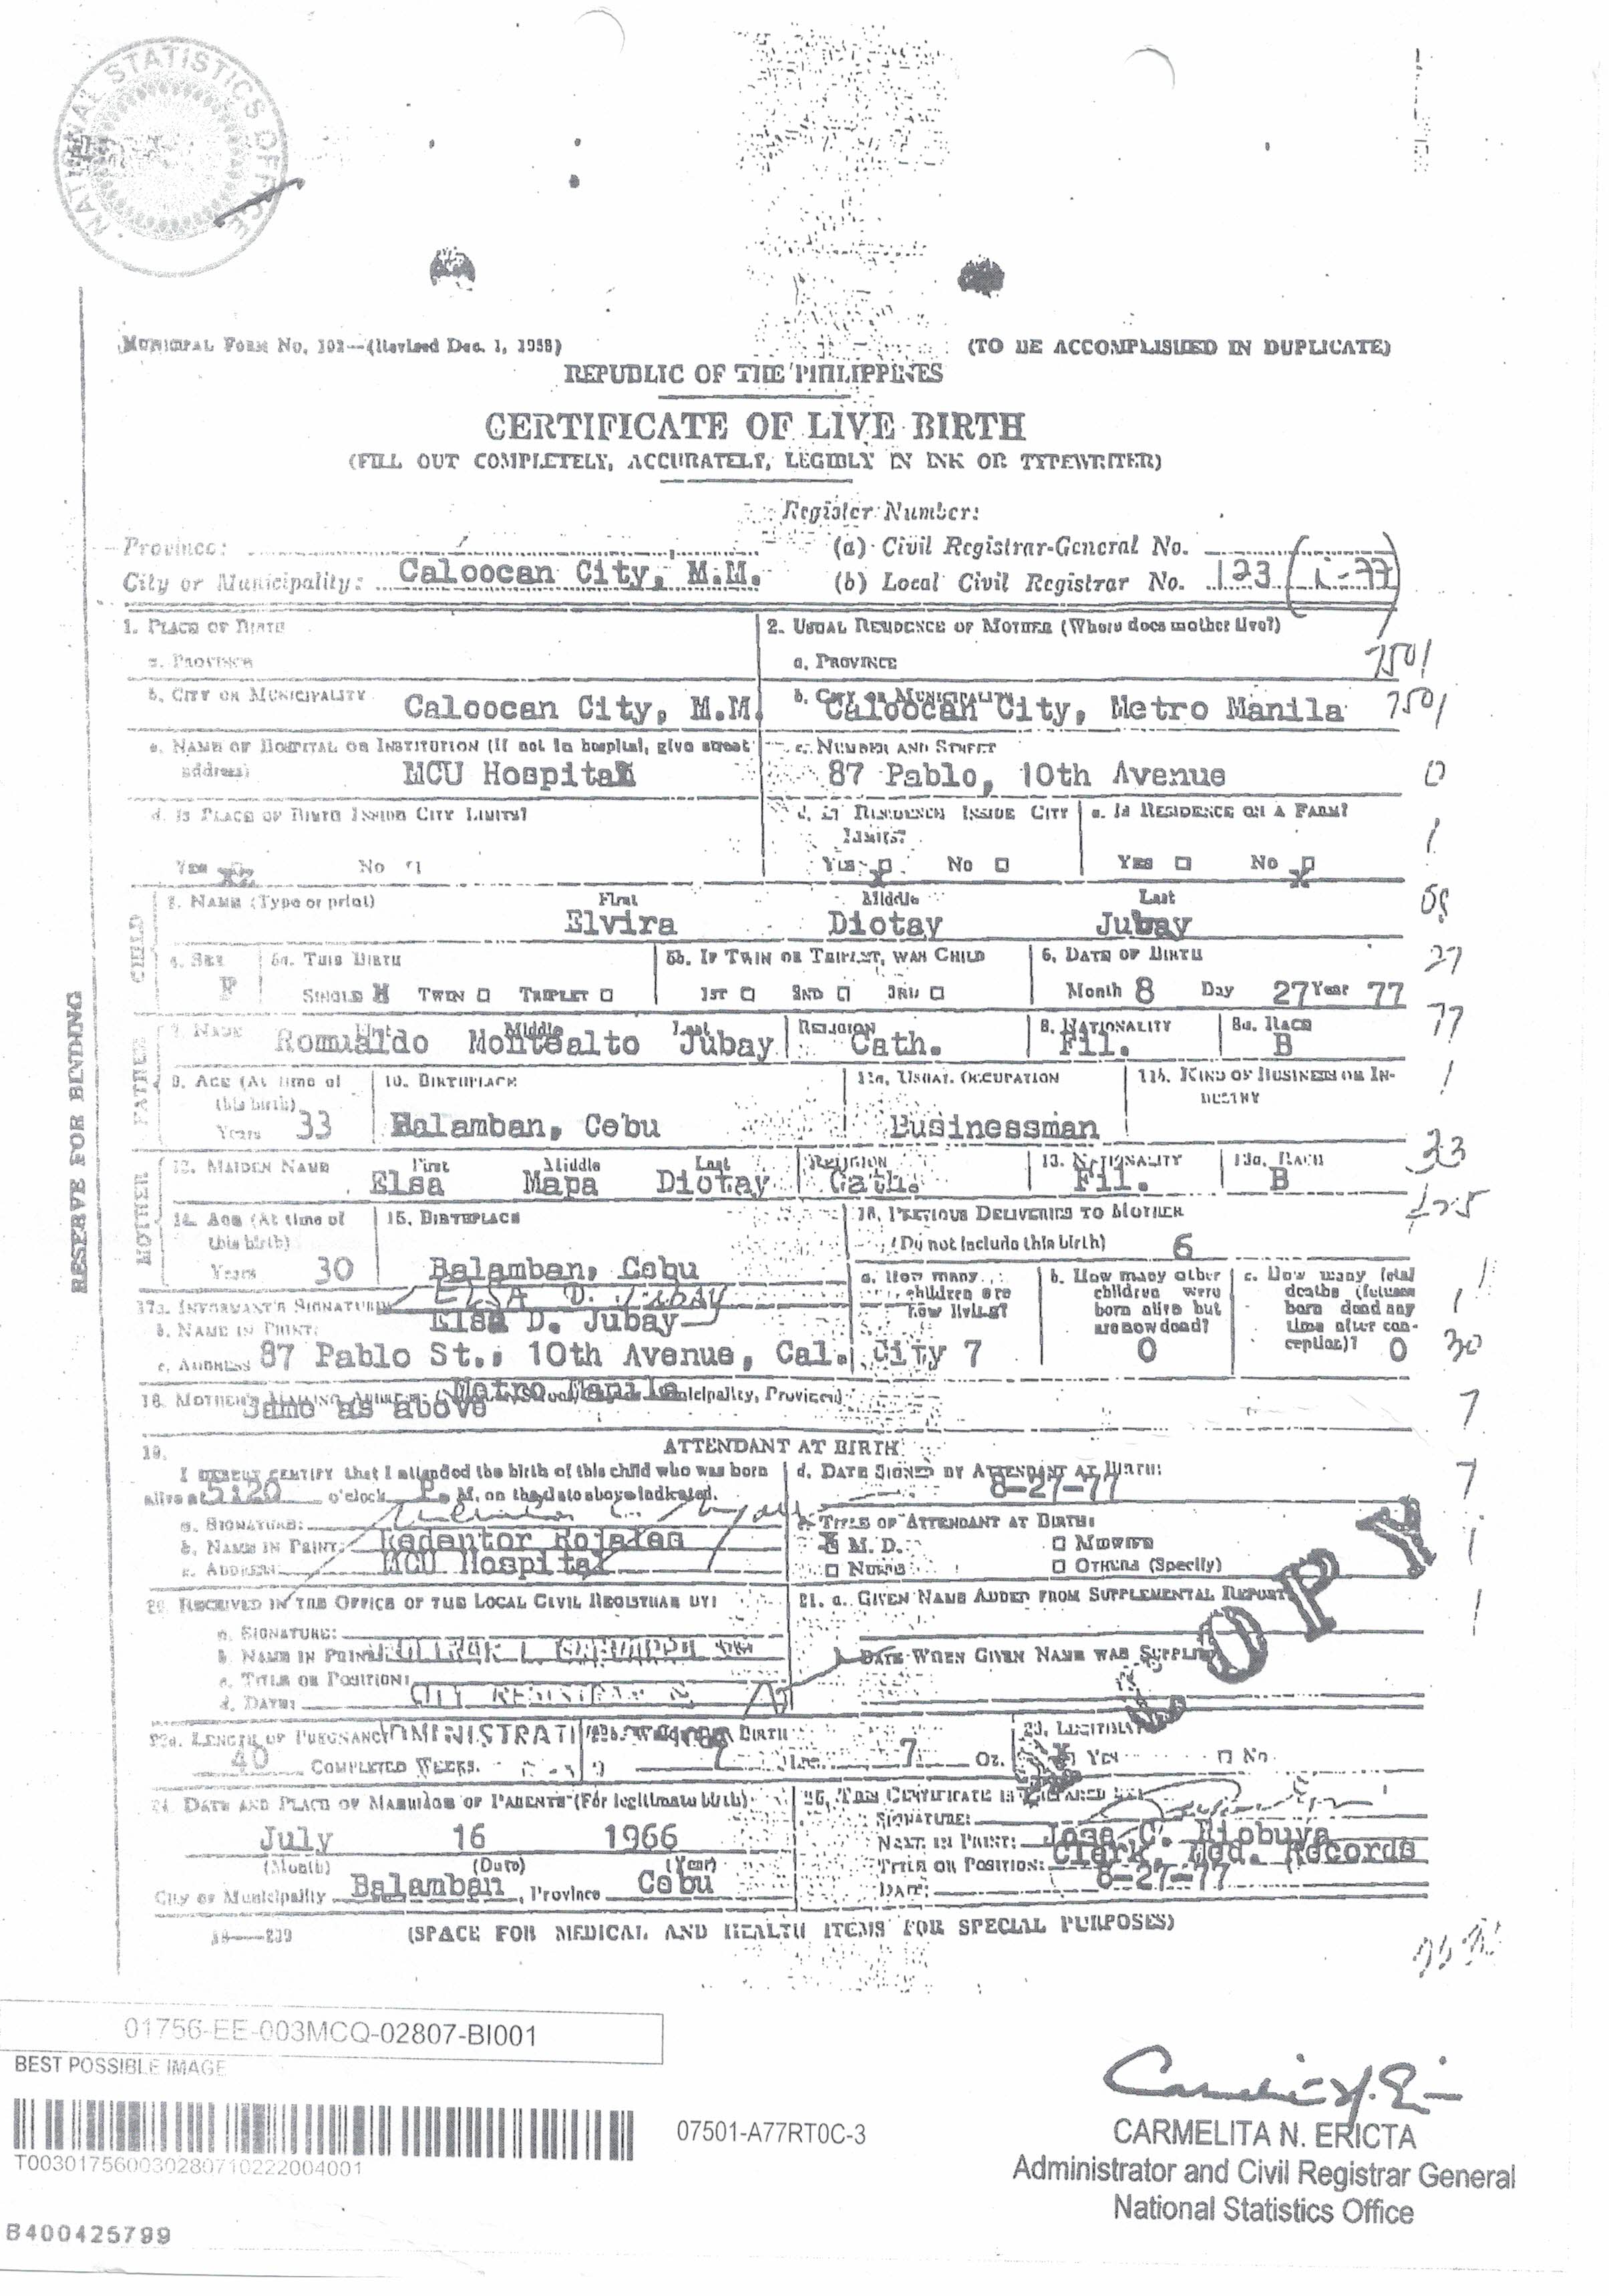 NATIONAL STATISTICS OFFICE
MUNICIPAL FORM No. 102—(Revised Dec. 1, 1958)
(TO BE ACCOMPLISHED IN DUPLICATE)
REPUBLIC OF THE PHILIPPINES
CERTIFICATE OF LIVE BIRTH
(FILL OUT COMPLETELY, ACCURATELY, LEGIBLY IN INK OR TYPEWRITER)
Register Number:
Province:
(a) Civil Registrar-General No.
City or Municipality: Caloocan City, M.M.
(b) Local Civil Registrar No. 123 (i-77)
1. PLACE OF BIRTH
2. USUAL RESIDENCE OF MOTHER (Where does mother live?)
a. PROVINCE
a. PROVINCE
7501
b. CITY OR MUNICIPALITY Caloocan City, M.M.
b. CITY OR MUNICIPALITY Caloocan City, Metro Manila
7501
c. NAME OF HOSPITAL OR INSTITUTION (If not in hospital, give street address) MCU Hospital
c. NUMBER AND STREET
87 Pablo, 10th Avenue
0
d. IS PLACE OF BIRTH INSIDE CITY LIMITS?
YES XX NO
d. IS RESIDENCE INSIDE CITY LIMITS?
YES X NO
e. IS RESIDENCE ON A FARM?
YES NO X
1
CHILD
3. NAME (Type or print) First Middle Last
Elvira Diotay Jubay
4. SEX F
5a. THIS BIRTH
SINGLE X TWIN TRIPLET
5b. IF TWIN OR TRIPLET, WAS CHILD
1ST 2ND 3RD
6. DATE OF BIRTH
Month 8 Day 27 Year 77
27
77
FATHER
7. NAME First Middle Last
Romualdo Montealto Jubay
RELIGION Cath.
8. NATIONALITY Fil.
8a. RACE B
9. AGE (At time of this birth)
Years 33
10. BIRTHPLACE
Balamban, Cebu
11a. USUAL OCCUPATION
Businessman
11b. KIND OF BUSINESS OR INDUSTRY
1
33
MOTHER
12. MAIDEN NAME First Middle Last
Elsa Mapa Diotay
RELIGION Cath.
13. NATIONALITY Fil.
13a. RACE B
14. AGE (At time of this birth)
Years 30
15. BIRTHPLACE
Balamban, Cebu
16. PREVIOUS DELIVERIES TO MOTHER
(Do not include this birth) 6
a. How many children are now living?
7
b. How many other children were born alive but are now dead?
0
c. How many fetal deaths (fetuses born dead any time after conception)?
0
30
17a. INFORMANT'S SIGNATURE ELSA D. Jubay
b. NAME IN PRINT: Elsa D. Jubay
c. ADDRESS 87 Pablo St., 10th Avenue, Cal. City
Metro Manila
18. MOTHER'S MAILING ADDRESS: Municipality, Province)
Same as above
7
19. ATTENDANT AT BIRTH
I HEREBY CERTIFY that I attended the birth of this child who was born
alive at 5:20 o'clock P. M. on the date above indicated.
a. SIGNATURE:
b. NAME IN PRINT: Redentor Rojales
c. ADDRESS: MCU Hospital
d. DATE SIGNED BY ATTENDANT AT BIRTH:
8-27-77
7
e. TITLE OF ATTENDANT AT BIRTH:
X M. D. MIDWIFE
NURSE OTHERS (Specify)
1
COPY
20. RECEIVED IN THE OFFICE OF THE LOCAL CIVIL REGISTRAR BY:
a. SIGNATURE:
b. NAME IN PRINT:
c. TITLE OR POSITION:
CITY REGISTRAR
d. DATE:
21. a. GIVEN NAME ADDED FROM SUPPLEMENTAL REPORT
b. DATE WHEN GIVEN NAME WAS SUPPLIED
22a. LENGTH OF PREGNANCY
40 COMPLETED WEEKS.
22b. WEIGHT AT BIRTH
7 Lbs. 7 Oz.
23. LEGITIMATE
X YES NO
24. DATE AND PLACE OF MARRIAGE OF PARENTS (For legitimate birth)
July 16 1966
(Month) (Date) (Year)
City or Municipality Balamban, Province Cebu
25. THIS CERTIFICATE IS PREPARED BY:
SIGNATURE:
NAME IN PRINT: Jose C. Riobuya
TITLE OR POSITION: Clerk, Med. Records
DATE: 8-27-77
(SPACE FOR MEDICAL AND HEALTH ITEMS FOR SPECIAL PURPOSES)
RESERVE FOR BINDING
01756-EE-003MCQ-02807-BI001
BEST POSSIBLE IMAGE
T003017560030280710222004001
07501-A77RT0C-3
CARMELITA N. ERICTA
Administrator and Civil Registrar General
National Statistics Office
B400425799